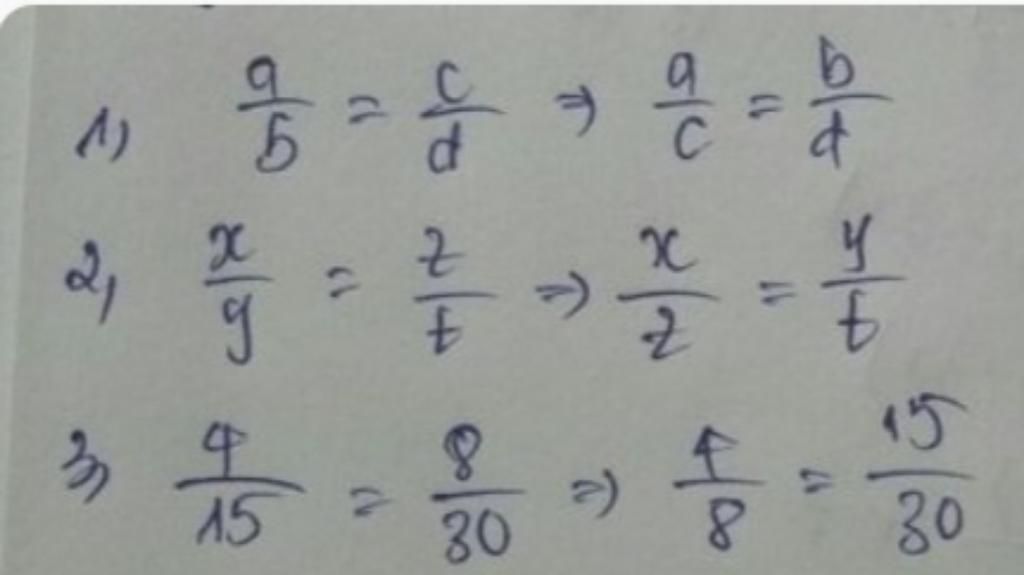 1) a/b = c/d => a/c = b/d
2, x/y = z/t => x/z = y/t
3, 4/15 = 8/30 => 4/8 = 15/30